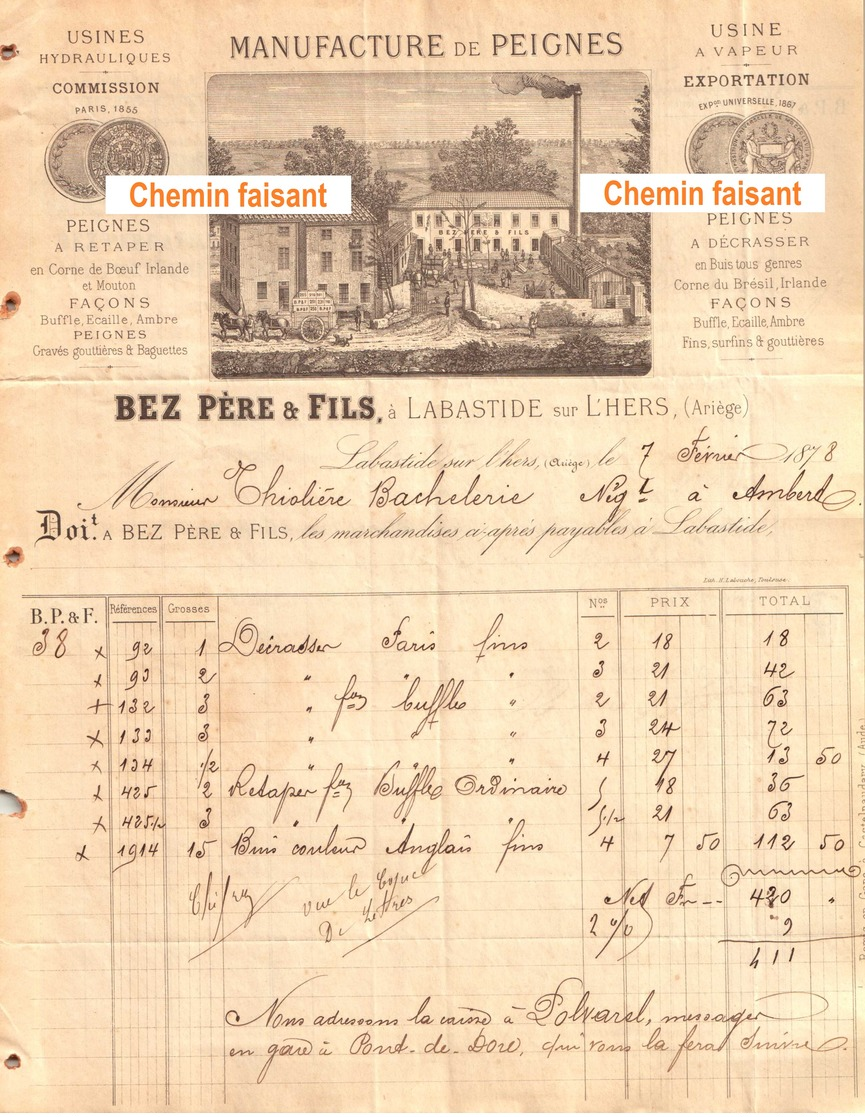 USINES
HYDRAULIQUES
COMMISSION
PARIS, 1855
MANUFACTURE DE PEIGNES
USINE
A VAPEUR
EXPORTATION
EXPon UNIVERSELLE, 1867
Chemin faisant
Chemin faisant
BEZ PÈRE & FILS
PEIGNES
A RETAPER
en Corne de Bœuf Irlande
et Mouton
FAÇONS
Buffle, Ecaille, Ambre
PEIGNES
Gravés gouttières & Baguettes
PEIGNES
A DÉCRASSER
en Buis tous genres
Corne du Brésil, Irlande
FAÇONS
Buffle, Ecaille, Ambre
Fins, surfins & gouttières
BEZ PÈRE & FILS, à LABASTIDE sur L'HERS, (Ariège)
Labastide sur l'hers, (Ariège) le 7 Février 1878
Monsieur Thiolière Bachelerie Négt à Ambert
Doit. A BEZ PÈRE & FILS, les marchandises ci-après payables à Labastide,
Lith. H. Labouche, Toulouse
B.P. & F. Références Grosses Nos PRIX TOTAL
38 x 92 1 Décrasser Paris fins 2 18 18
x 93 2 " " " 3 21 42
+ 132 3 " fon buffle " 2 21 63
x 133 3 " " " 3 24 72
x 134 1/2 " " " 4 27 13 50
x 425 2 Retaper fon Buffle Ordinaire 5 18 36
x 425 1/2 3 " " " 5 1/2 21 63
x 1914 15 Buis couleur Anglais fins 4 7 50 112 50
vue le Copie
De Lettres
Net Fr -- 420 "
2 % " 9
411
Nous adressons la caisse à Polvarel, messager
en gare à Pont-de-Dore, qui vous la fera suivre.